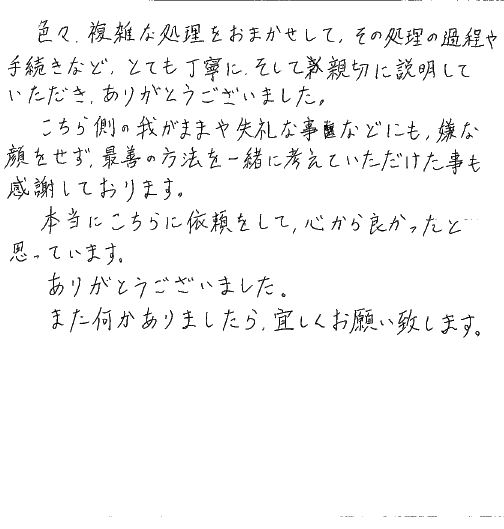 色々、複雑な処理をおまかせして、その処理の過程や
手続きなど、とても丁寧に、そして親切に説明して
いただき、ありがとうございました。
こちら側の我がままや失礼な事などにも、嫌な
顔をせず、最善の方法を一緒に考えていただけた事も
感謝しております。
本当にこちらに依頼をして、心から良かったと
思っています。
ありがとうございました。
また何かありましたら、宜しくお願い致します。